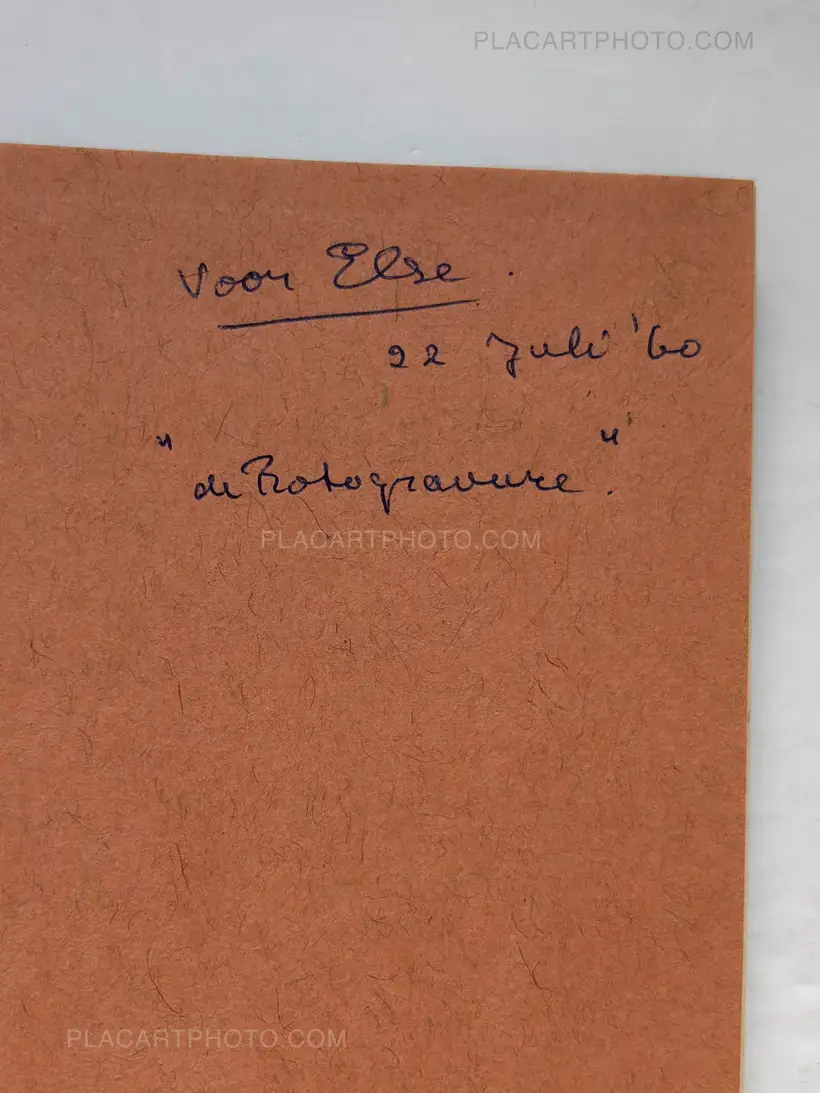 PLACARTPHOTO.COM
Voor Else.
22 Juli '60
"de Rotogravure."
PLACARTPHOTO.COM
PLACARTPHOTO.COM